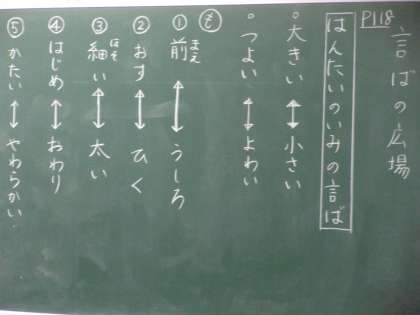 言ばの広場
P118
はんたいのいみの言ば
○大きい ↔ 小さい
○つよい ↔ よわい
① 前 ↔ うしろ
まえ
② おす ↔ ひく
③ 細い ↔ 太い
ほそ
④ はじめ ↔ おわり
⑤ かたい ↔ やわらかい